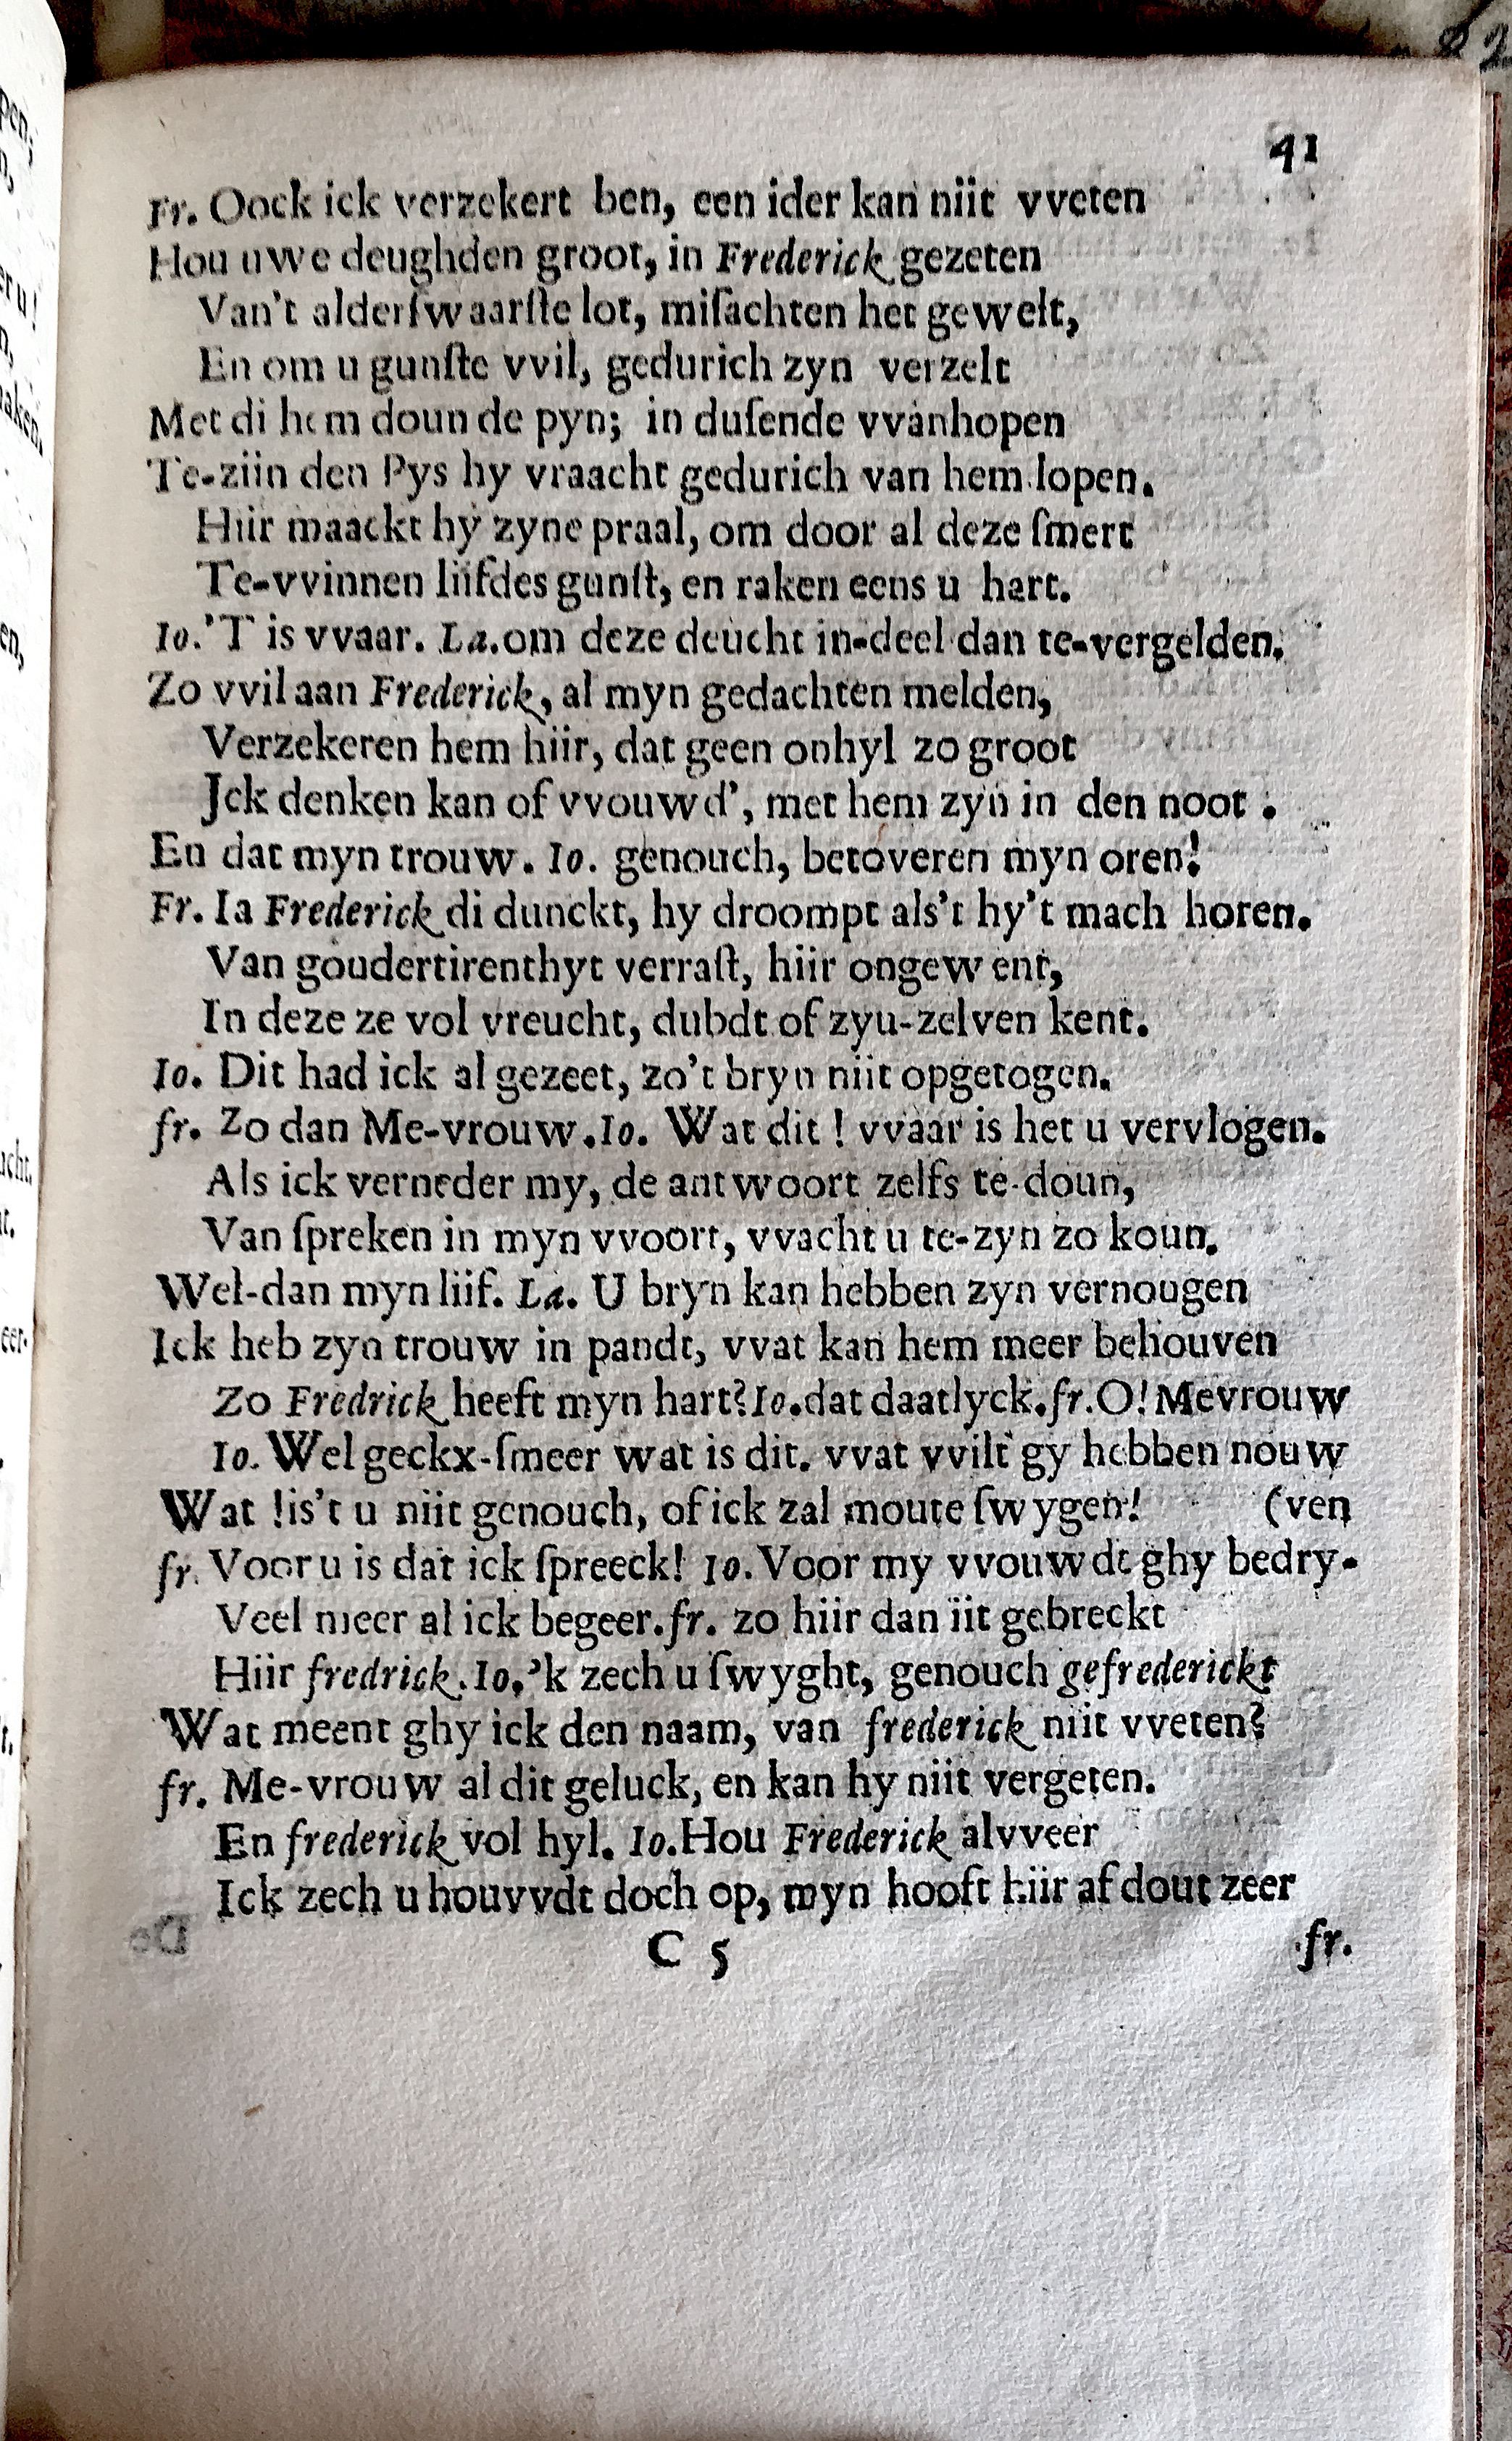 41
Fr. Oock ick verzekert ben, een ider kan niit vveten
Hou uwe deughden groot, in Frederick gezeten
Van't alderſwaarſte lot, miſachten het gewelt,
En om u gunſte vvil, gedurich zyn verzelt
Met di hem doun de pyn; in duſende vvanhopen
Te-ziin den Pys hy vraacht gedurich van hem lopen.
Hiir maackt hy zyne praal, om door al deze ſmert
Te-vvinnen liifdes gunſt, en raken eens u hart.
Io.'T is vvaar. La.om deze deucht in-deel dan te-vergelden.
Zo vvil aan Frederick, al myn gedachten melden,
Verzekeren hem hiir, dat geen onhyl zo groot
Jck denken kan of vvouwd', met hem zyn in den noot.
En dat myn trouw. Io. genouch, betoveren myn oren!
Fr. Ia Frederick di dunckt, hy droompt als't hy't mach horen.
Van goudertirenthyt verraſt, hiir ongewent,
In deze ze vol vreucht, dubdt of zyu-zelven kent.
Io. Dit had ick al gezeet, zo't bryn niit opgetogen.
fr. Zo dan Me-vrouw. Io. Wat dit! vvaar is het u vervlogen.
Als ick verneder my, de antwoort zelfs te-doun,
Van ſpreken in myn vvoort, vvacht u te-zyn zo koun.
Wel-dan myn liif. La. U bryn kan hebben zyn vernougen
Ick heb zyn trouw in pandt, vvat kan hem meer behouven
Zo Fredrick heeft myn hart? Io.dat daatlyck.fr.O! Mevrouw
Io. Wel geckx-ſmeer wat is dit. vvat vvilt gy hebben nouw
Wat !is't u niit genouch, of ick zal moute ſwygen! (ven
fr. Voor u is dat ick ſpreeck! Io. Voor my vvouwdt ghy bedry-
Veel meer al ick begeer.fr. zo hiir dan iit gebreckt
Hiir fredrick. Io.'k zech u ſwyght, genouch gefrederickt
Wat meent ghy ick den naam, van frederick niit vveten?
fr. Me-vrouw al dit geluck, en kan hy niit vergeten.
En frederick vol hyl. Io.Hou Frederick alvveer
Ick zech u houvvdt doch op, myn hooft hiir af dout zeer
C 5 fr.